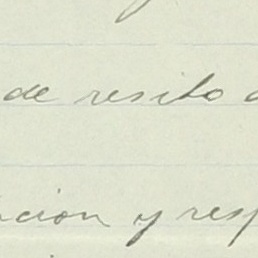 de resito
cion y resp